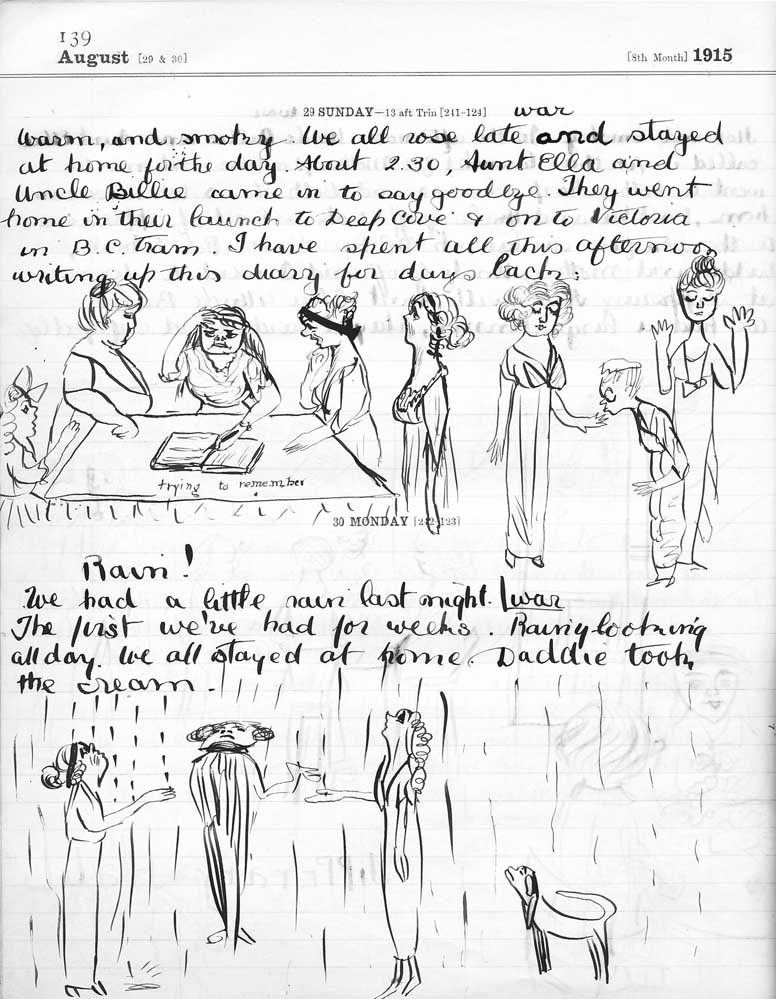 139
August [29 & 30] [8th Month] 1915
29 SUNDAY—13 aft Trin [241-124] war
Warm, and smoky. We all rose late and stayed
at home for the day. About 2.30, Aunt Ella and
Uncle Billie came in to say goodbye. They went
home in their launch to Deep Cove & on to Victoria
in B.C. tram. I have spent all this afternoon
writing up this diary for days back.
trying to remember
30 MONDAY [242-123]
Rain!
We had a little rain last night. war
The first we've had for weeks. Rainy looking
all day. We all stayed at home. Daddie took
the cream.